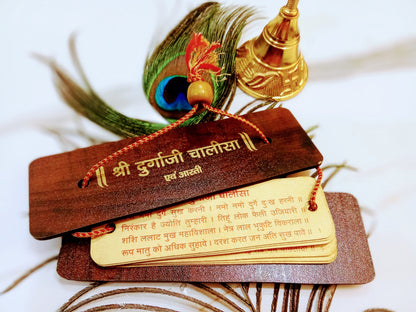 ॥ श्री दुर्गाजी चालीसा ॥
एवं आरती
चालीसा
नमो नमो दुर्गे सुख करनी । नमो नमो दुर्गे दुःख हरनी ॥
निरंकार है ज्योति तुम्हारी । तिहूं लोक फैली उजियारी ॥
शशि ललाट मुख महाविशाला । नेत्र लाल भृकुटि विकराला ॥
रूप मातु को अधिक सुहावे । दरश करत जन अति सुख पावे ॥